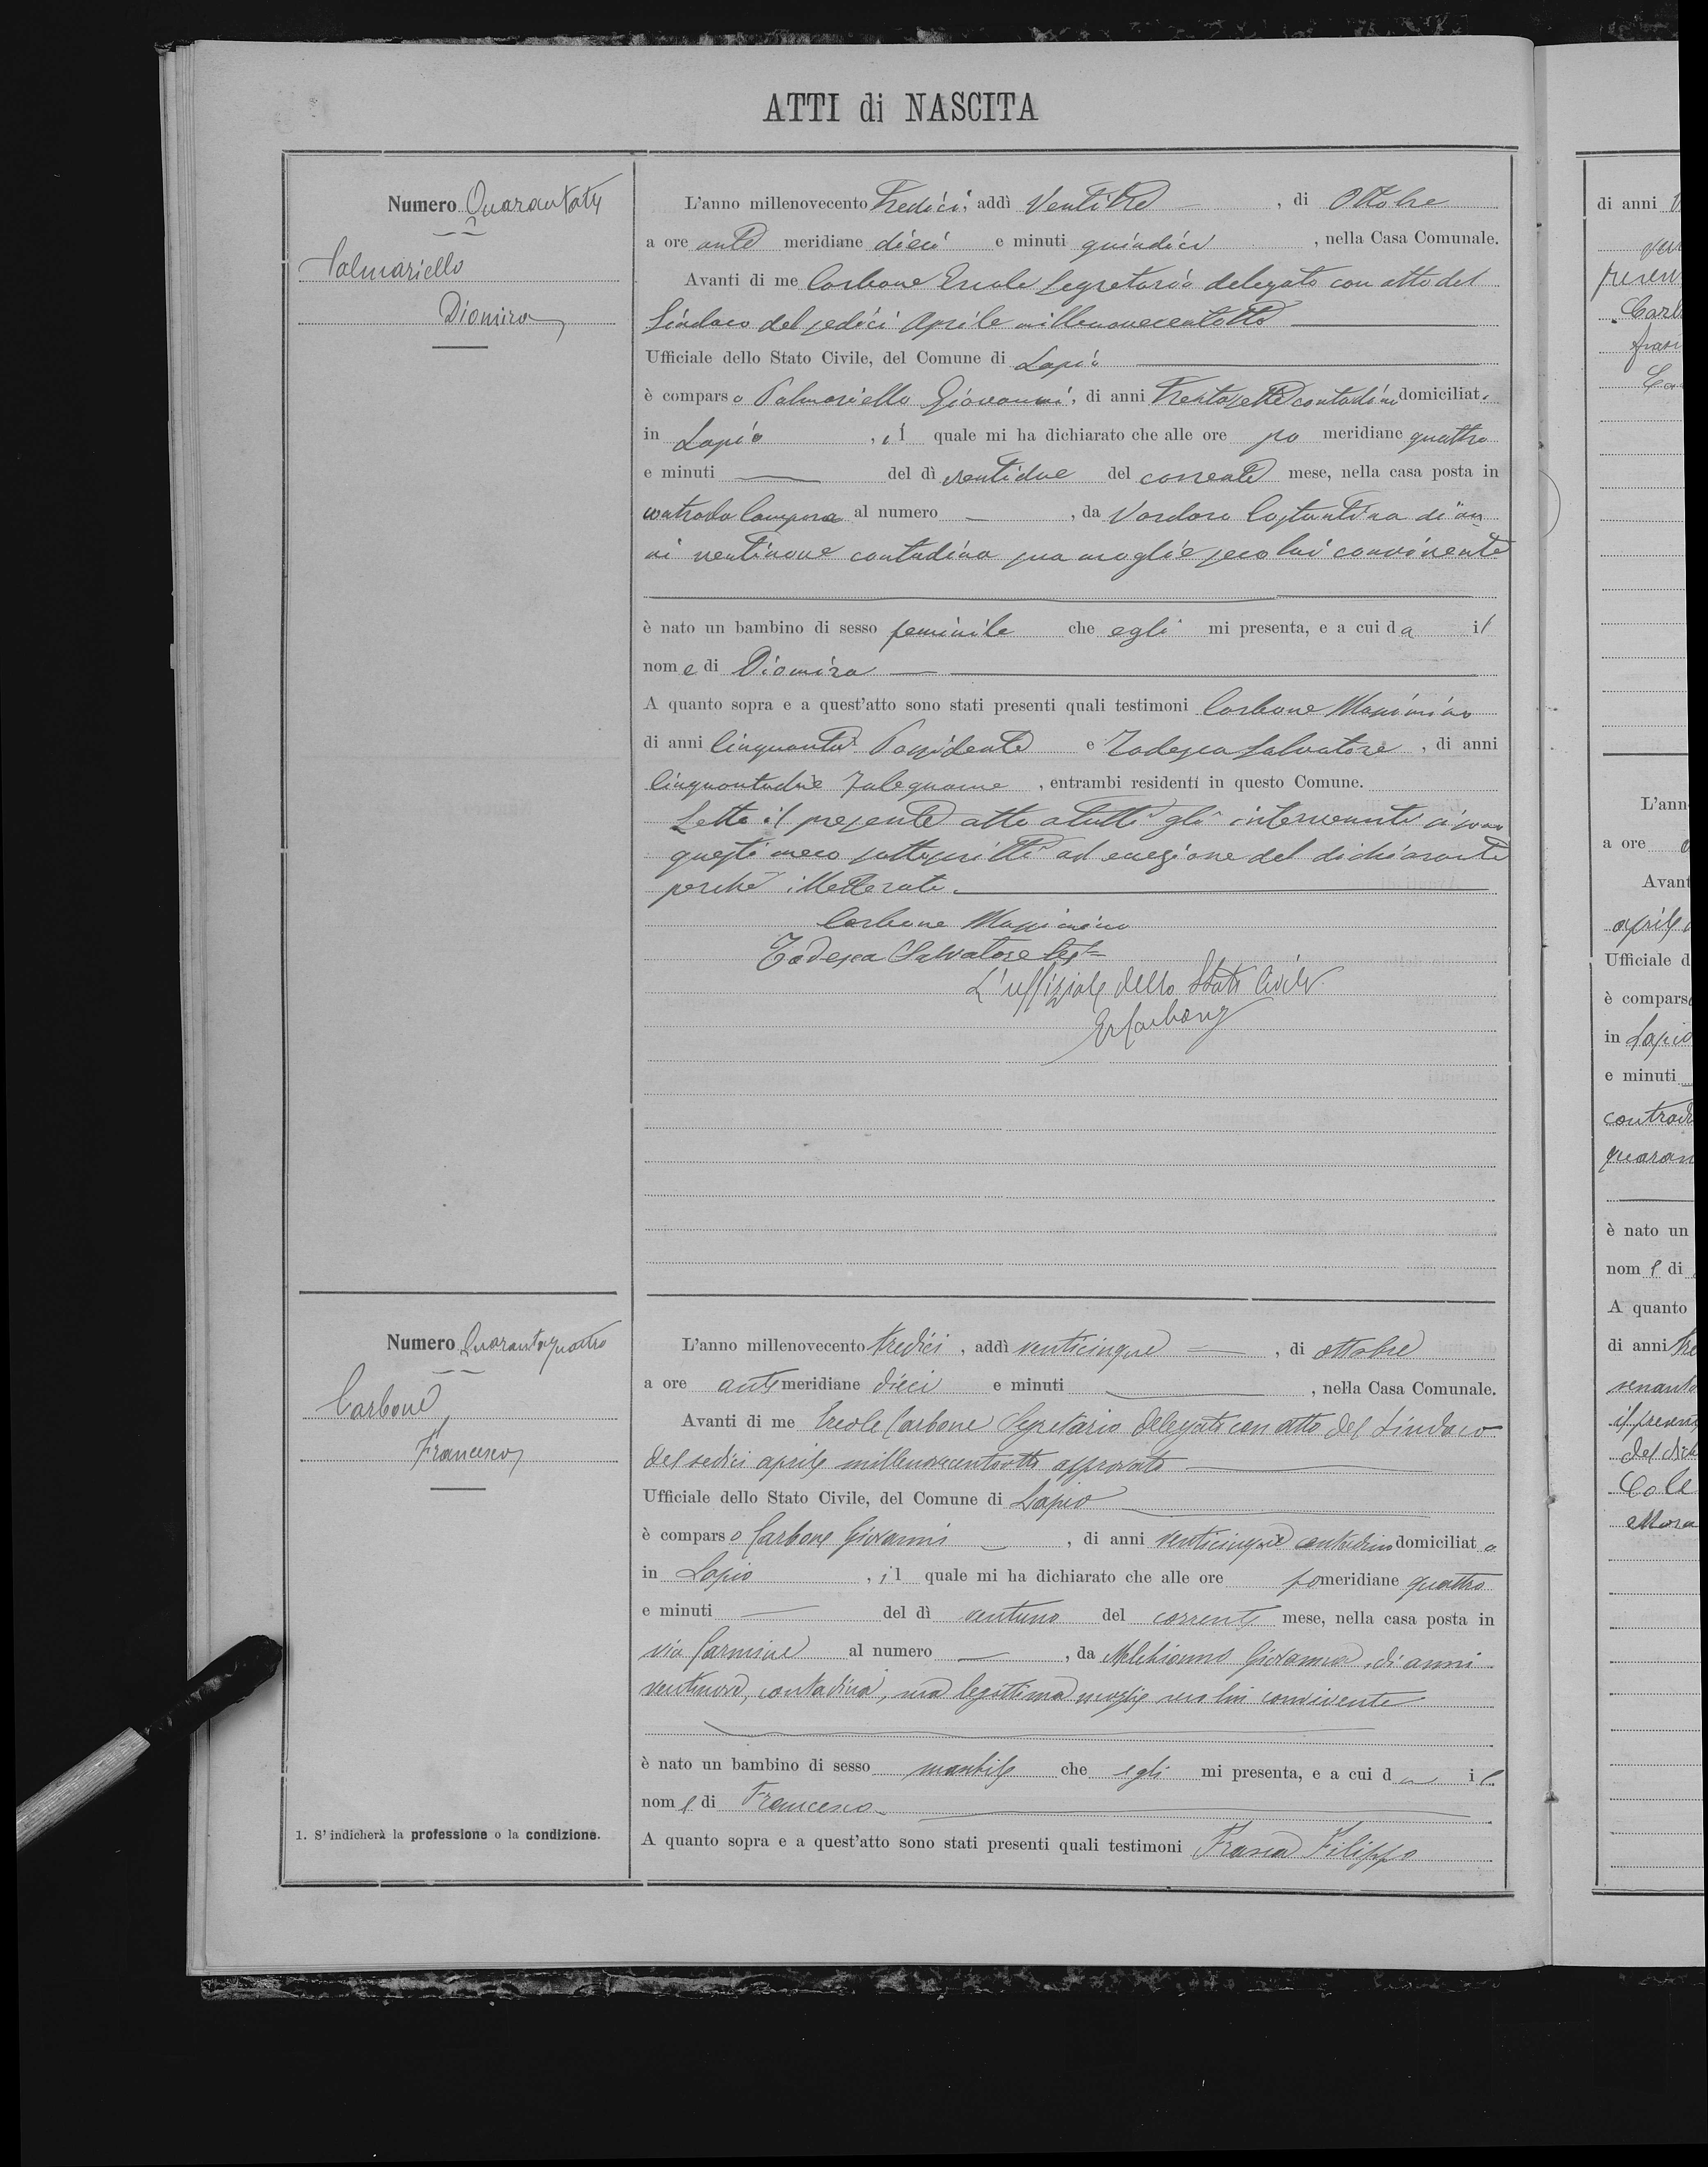 ATTI di NASCITA
Numero Quarantatre
Palmariello
Diomira
L'anno millenovecento Tredici, addì Ventitre, di Ottobre
a ore ante meridiane dieci e minuti quindici, nella Casa Comunale.
Avanti di me Carbone Ercole Segretario delegato con atto del
Sindaco del sedici Aprile millenovecentotto
Ufficiale dello Stato Civile, del Comune di Lapio
è comparso Palmariello Giovanni, di anni Trentasette contadino domiciliato
in Lapio, il quale mi ha dichiarato che alle ore po meridiane quattro
e minuti — del dì ventidue del corrente mese, nella casa posta in
contrada Campora al numero —, da Vardaro Costantina di an
ni ventinove contadina sua moglie seco lui convivente
è nato un bambino di sesso feminile che egli mi presenta, e a cui da il
nome di Diomira
A quanto sopra e a quest'atto sono stati presenti quali testimoni Carbone Massimino
di anni Cinquanta Possidente e Todesca Salvatore, di anni
Cinquantadue Falegname, entrambi residenti in questo Comune.
Letto il presente atto a tutti gli intervenuti si sono
questi meco sottoscritti ad eccezione del dichiarante
perchè illetterato.
Carbone Massimino
Todesca Salvatore test
L'uffiziale dello Stato Civile
ErCarbone
Numero Quarantaquattro
Carbone
Francesco
L'anno millenovecento tredici, addì venticinque, di ottobre
a ore antimeridiane dieci e minuti —, nella Casa Comunale.
Avanti di me Ercole Carbone Segretario delegato con atto del Sindaco
del sedici aprile millenovecentootto approvato
Ufficiale dello Stato Civile, del Comune di Lapio
è comparso Carbone Giovanni, di anni venticinque contadino domiciliato
in Lapio, il quale mi ha dichiarato che alle ore pomeridiane quattro
e minuti — del dì ventuno del corrente mese, nella casa posta in
via Carmine al numero —, da Melchionno Giovanna, di anni
ventinove, contadina, sua legittima moglie seco lui convivente
è nato un bambino di sesso maschile che egli mi presenta, e a cui da il
nome di Francesco
1. S'indicherà la professione o la condizione.
A quanto sopra e a quest'atto sono stati presenti quali testimoni Frasca Filippo
di anni
presen
Carb
L'ann
a ore
Avant
aprile
Ufficiale d
è compars
in Lapio
e minuti
contrad
quaran
è nato un
nome di
A quanto
di anni tre
il presen
del dich